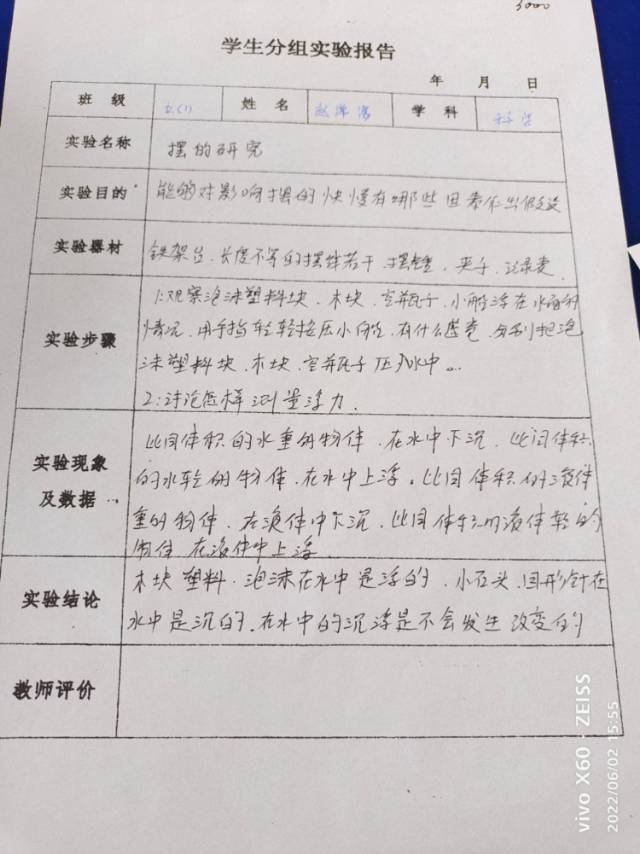 3000
学生分组实验报告
年 月 日
班级 五(1) 姓名 赵 学科 科学
实验名称 摆的研究
实验目的 能够对影响摆的快慢有哪些因素作出假设
实验器材 铁架台、长度不等的摆绳若干、摆锤、夹子、记录表
实验步骤
1:观察泡沫塑料块、木块、空瓶子、小船浮在水面的
情况、用手指轻轻按压小船、有什么感觉、分别把泡
沫塑料块、木块、空瓶子压入水中。
2:讨论怎样测量浮力.
实验现象及数据
比同体积的水重的物体、在水中下沉、比同体积
的水轻的物体、在水中上浮。比同体积的液体
重的物体、在液体中下沉、比同体积的液体轻的
物体、在液体中上浮.
实验结论
木块 塑料、泡沫在水中是浮的、小石头、回形针在
水中是沉的、在水中的沉浮是不会发生改变的
教师评价
vivo X60 · ZEISS
2022/06/02 15:55